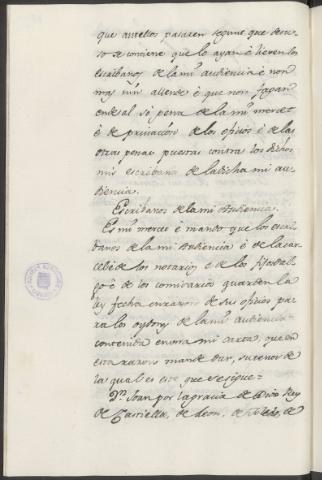 que antellos pasaren segund que de su
so se contiene que lo ayan è lieven los
escribanos de la mi audiencia è non
mas nin allende è que non fagan
ende al so pena de la mi merced
è de privación de los ofiçios è de las
otras penas puestas contra los dichos
mis escribanos de la dicha mi au
diencia.
Escribanos de la mi Audiencia.
Es mi merced è mando que los escri
banos de la mi Audiencia è de la car
cel è de los notarios è de los fijosdal
go è de los comisarios guarden la
ley fecha en razon de sus ofiçios pa
ra los oydores de la mi audiencia
contenida en una mi carta, que en
esta razon mande dar, su tenor de
la qual es este que se sigue=
Dn. Joan por la gracia de Dios Rey
de Castiella, de Leon, de Toledo, de